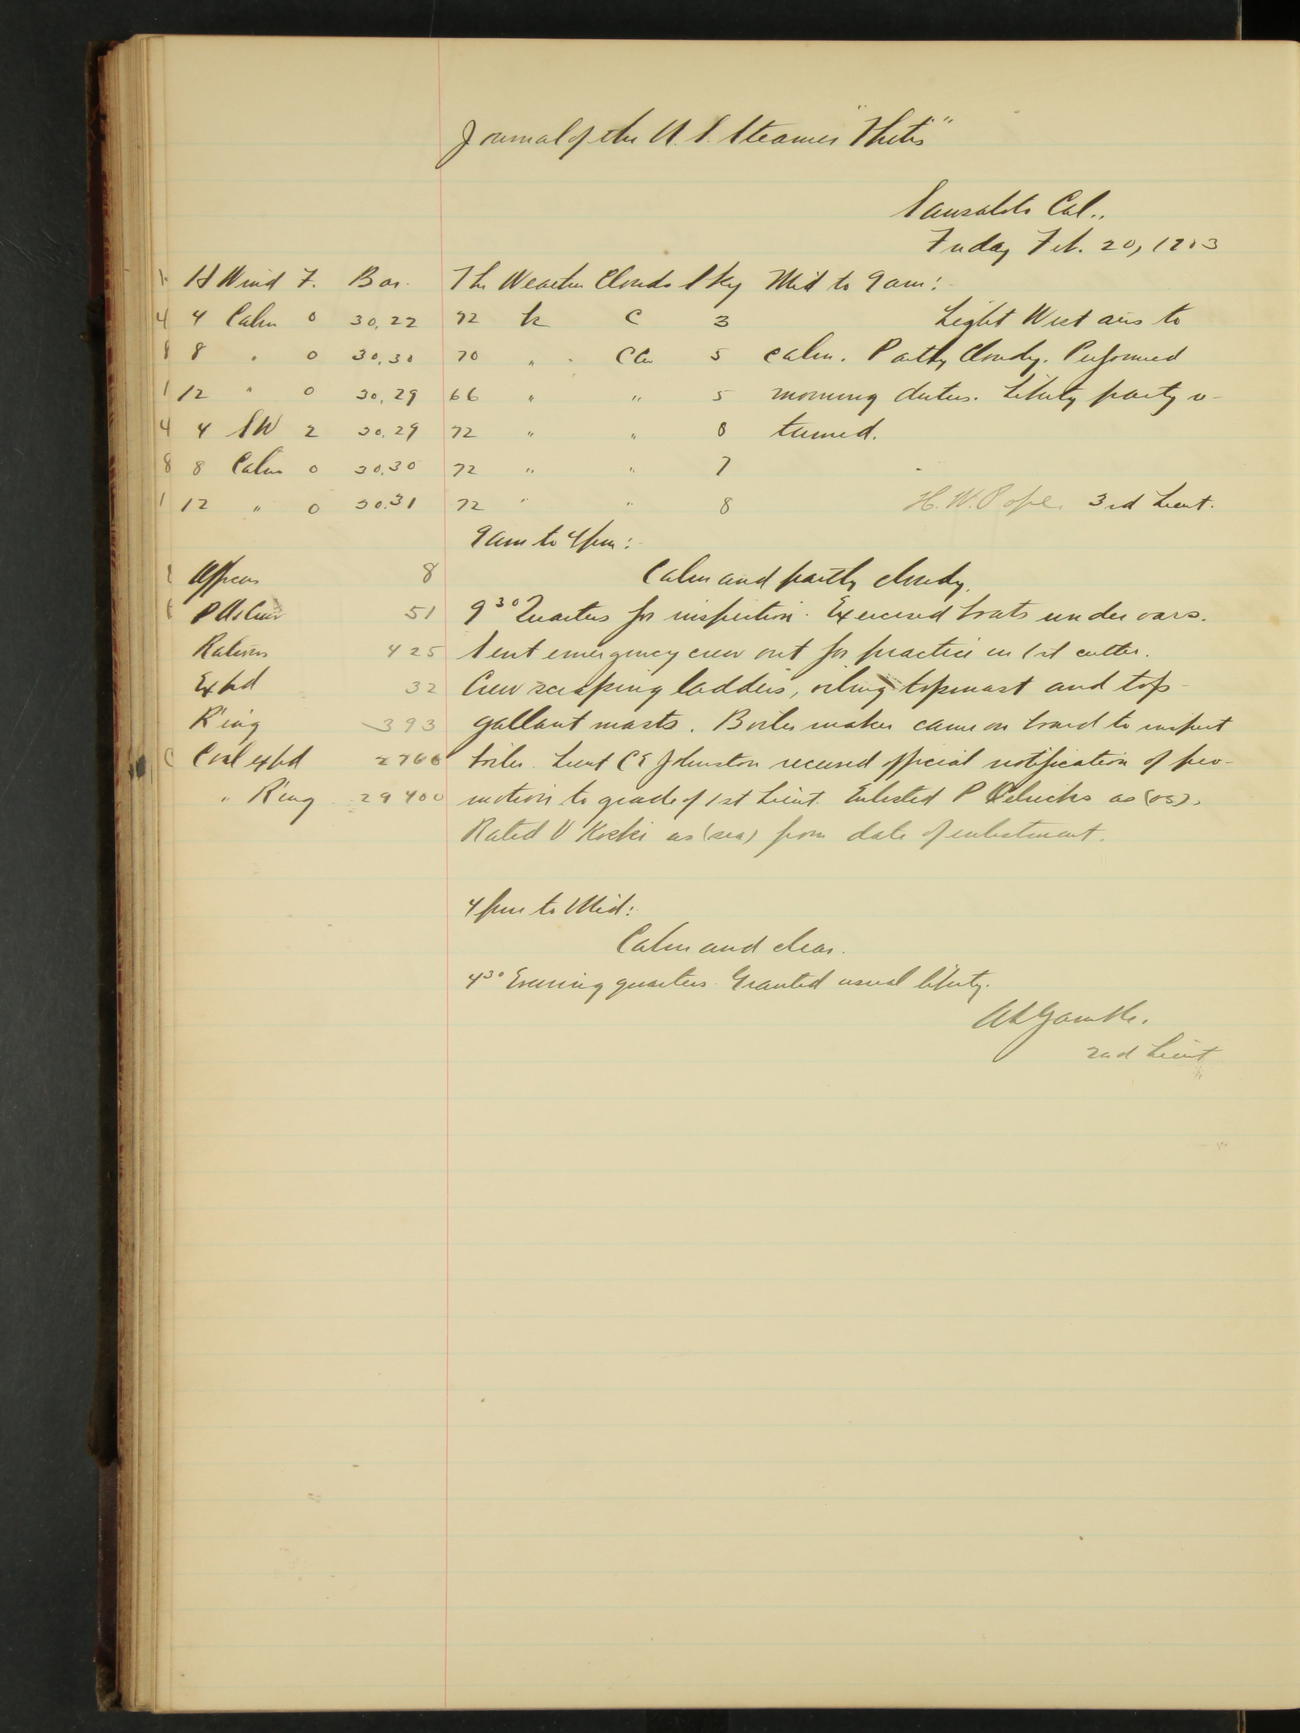 Journal of the U. S. Steamer "Thetis"
Sausalito Cal.,
Friday Feb. 20, 1903
H Wind F. Bar. Th Weather Clouds Sky Mid to 9 am:
4 Calm 0 30.22 72 C 3 Light West airs to
8 " 0 30.30 70 " CCu 5 calm. Partly Cloudy. Performed
12 " 0 30.29 66 " " 5 morning duties. Liberty party re-
4 SW 2 30.29 72 " " 8 turned.
8 Calm 0 30.30 72 " " 7
12 " 0 30.31 72 " " 8 H. W. Pope. 3rd Lieut.
9 am to 4 pm:
Officers 8 Calm and partly cloudy.
51 9 30 Quarters for inspection. Exercised boats under oars.
Rations 425 Sent emergency crew out for practice in 1st cutter.
Expd 32 Crew scraping ladders, oiling topmast and top-
R'ing 393 gallant masts. Boiler maker came on board to inspect
Coal expd 2700 boiler. Lieut C E Johnston received official notification of pro-
" R'ing 29400 motion to grade of 1st Lieut. Enlisted P as (os).
Rated V as (sea) from date of enlistment.
4 pm to Mid:
Calm and clear.
4 30 Evening quarters. Granted usual liberty.
A L Gamble.
2nd Lieut